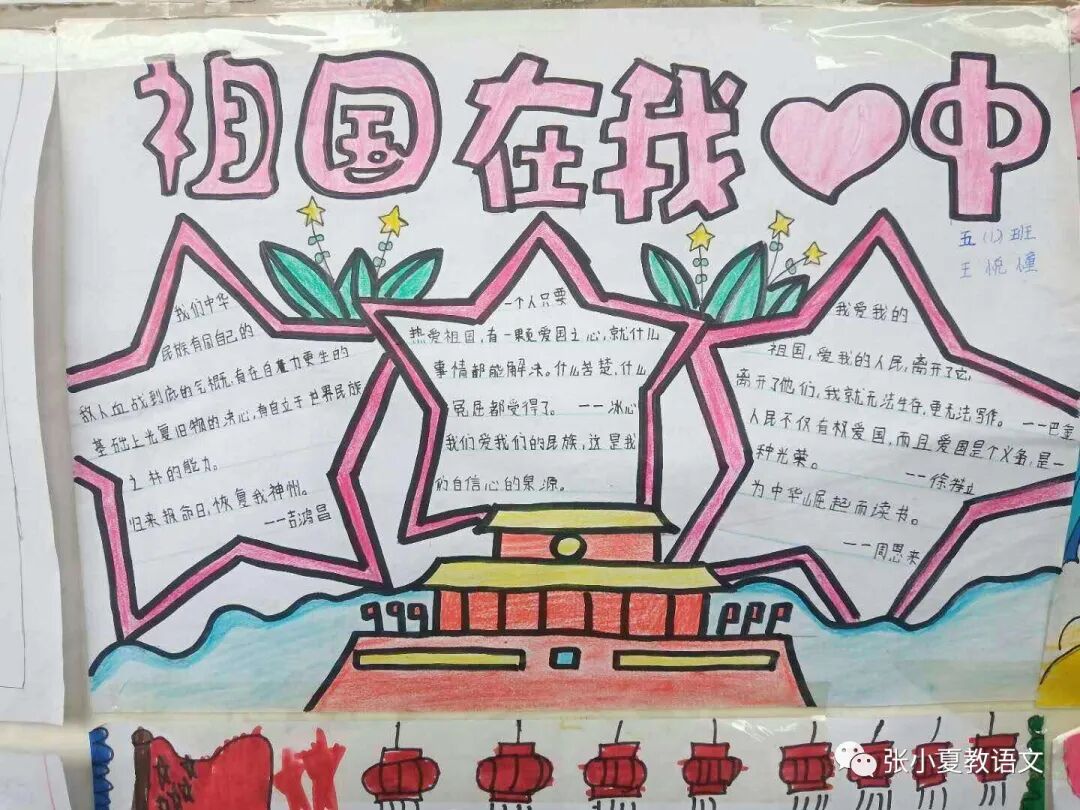 祖国在我中
五（1）班
王悦橦
我们中华
民族有同自己的
敌人血战到底的气概,有在自量力更生的
基础上光复旧物的决心,有自立于世界民族
之林的能力。
归来报命日,恢复我神州。
——吉鸿昌
一个人只要
热爱祖国,有一颗爱国之心,就什么
事情都能解决。什么苦楚,什么
冤屈都受得了。——冰心
我们爱我们的民族,这是我
们自信心的泉源。
我爱我的
祖国,爱我的人民,离开了它,
离开了他们,我就无法生存,更无法写作。——巴金
人民不仅有权爱国,而且爱国是个义务,是一
种光荣。
——徐特立
为中华崛起而读书。
——周恩来
张小夏教语文